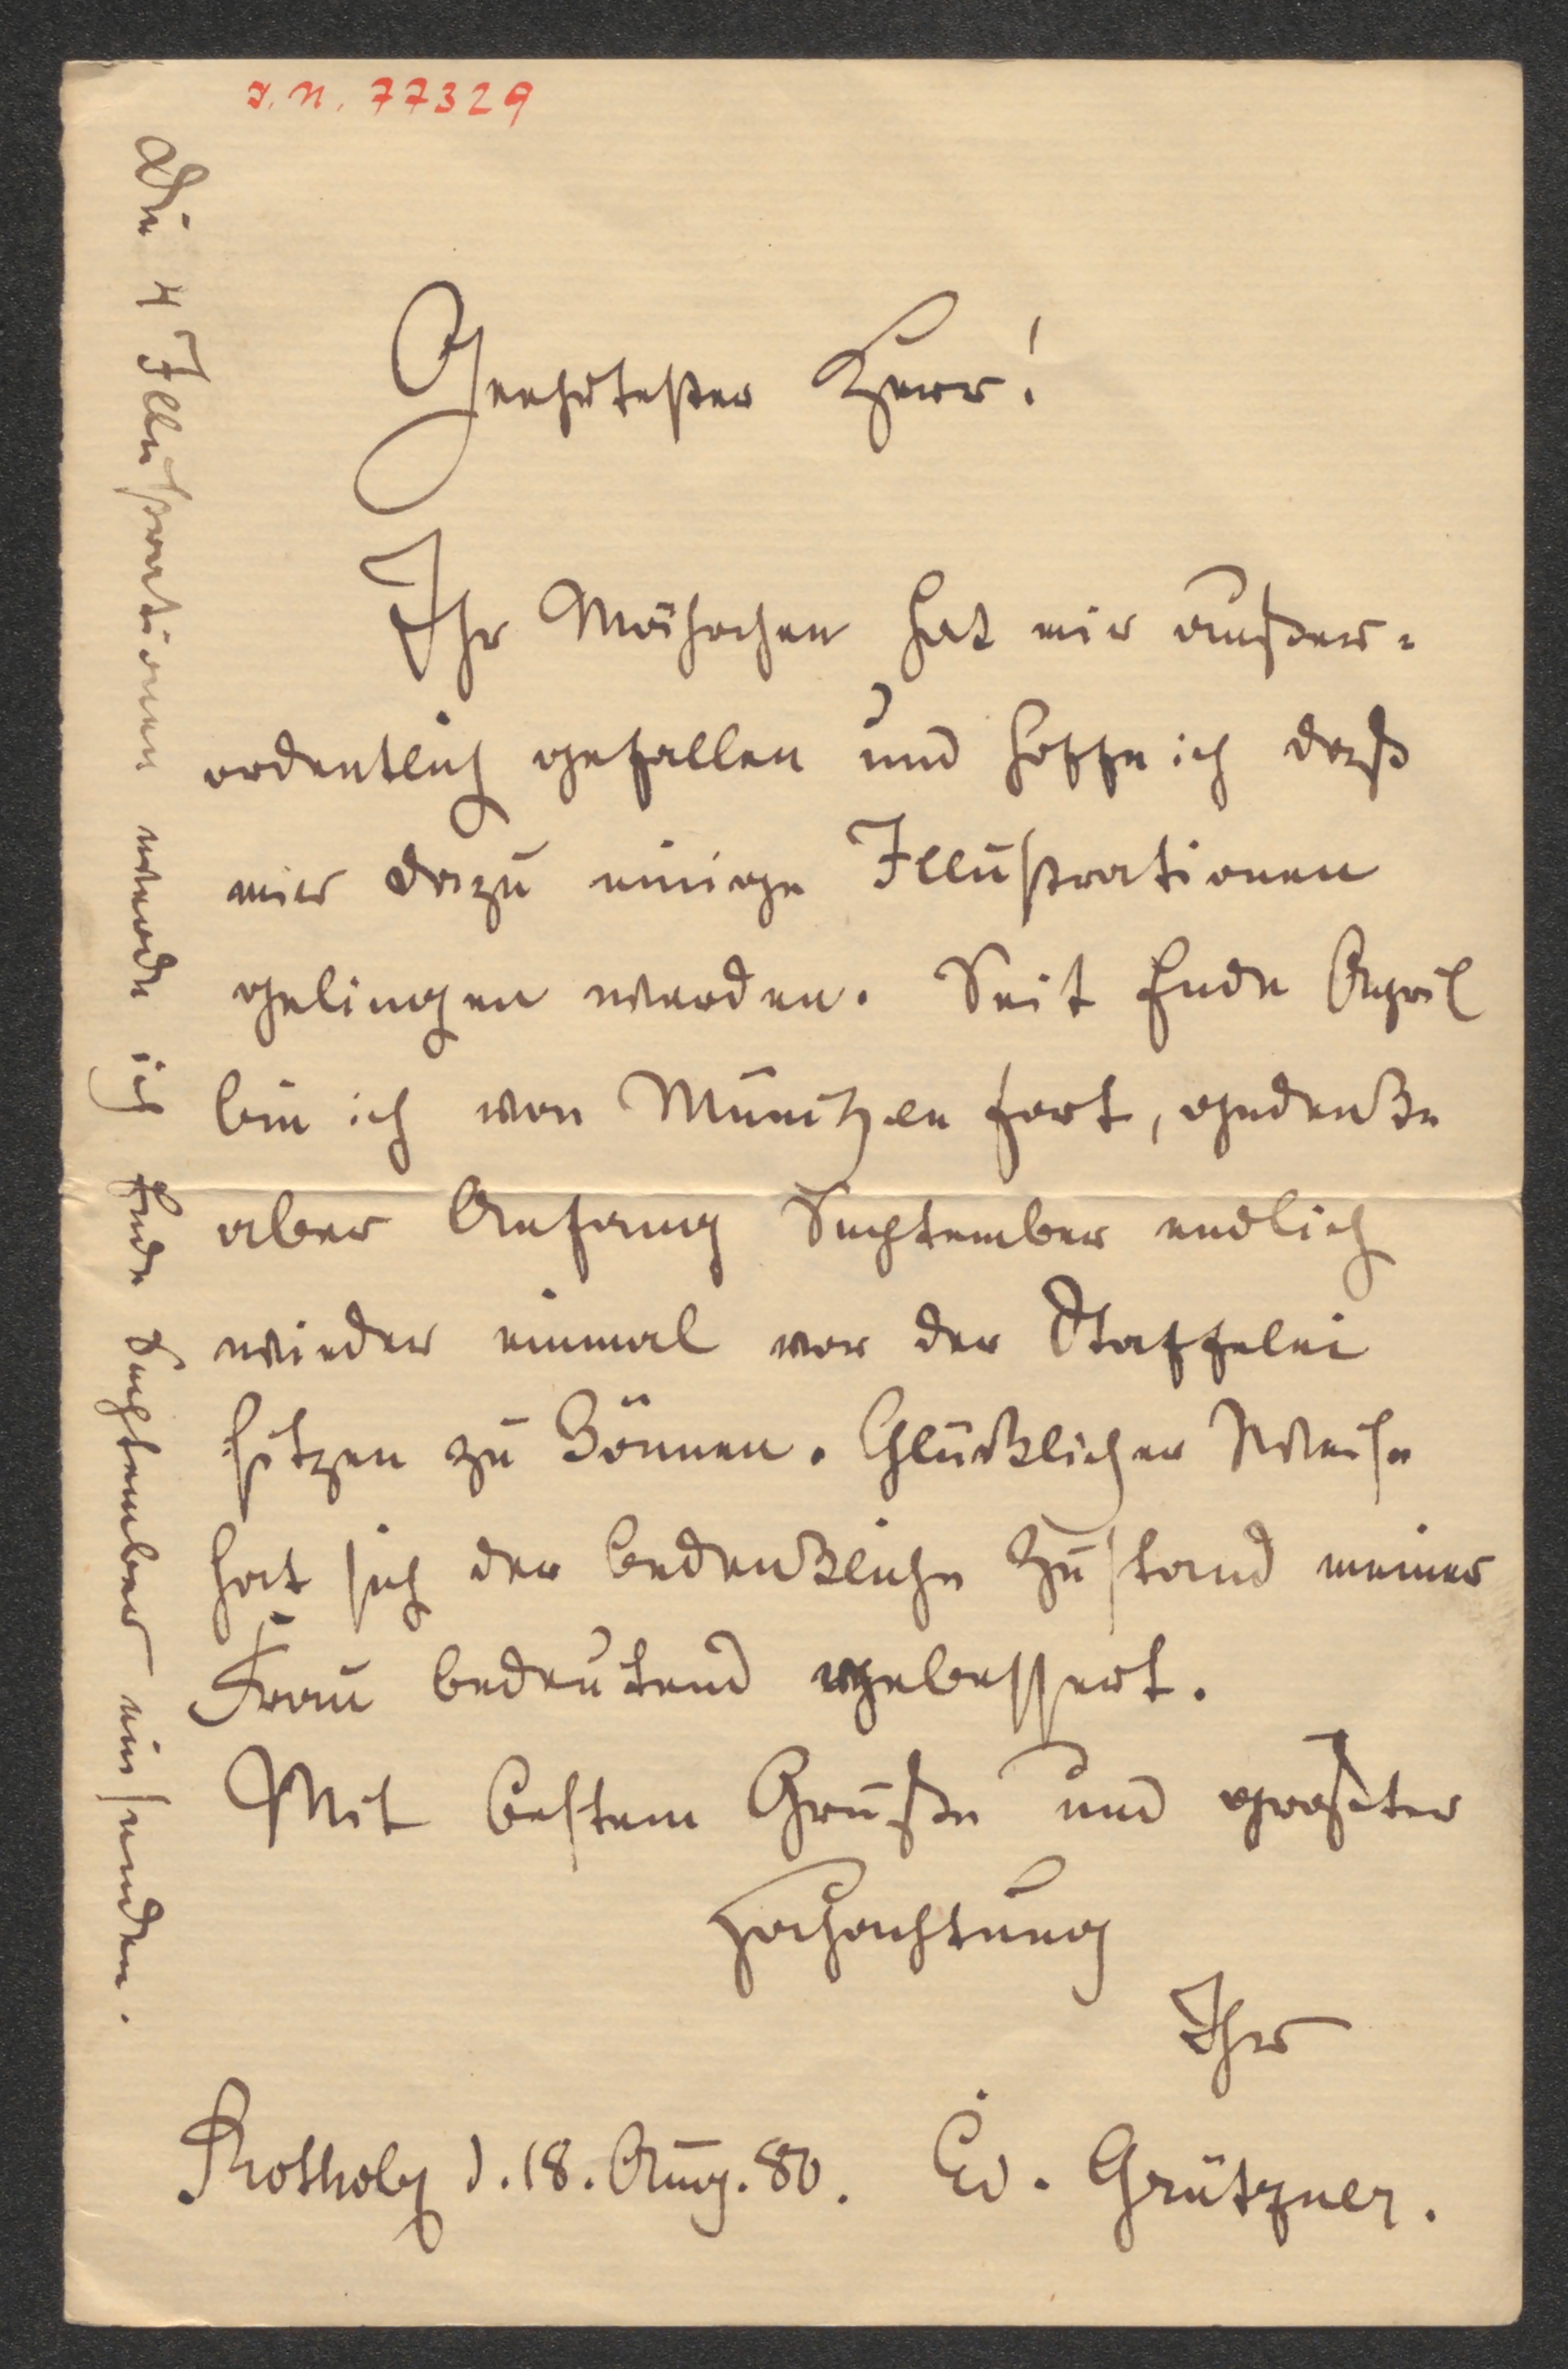 I. N. 77329
Geehrtester Herr!
Ihr Mährchen hat mir außer-
ordentlich gefallen und hoffe ich daß
mir dazu einige Illustrationen
gelingen werden. Seit Ende April
bin ich von München fort, gedenke
aber Anfang September endlich
wieder einmal vor der Staffelei
sitzen zu können. Glücklicher Weise
hat sich der bedenkliche Zustand meiner
Frau bedeutend gebessert.
Mit bestem Gruße und größter
Hochachtung
Ihr
Rotholz d. 18. Aug. 80. Ed. Grützner.
Die 4 Illustrationen werde ich Ende September einsenden.